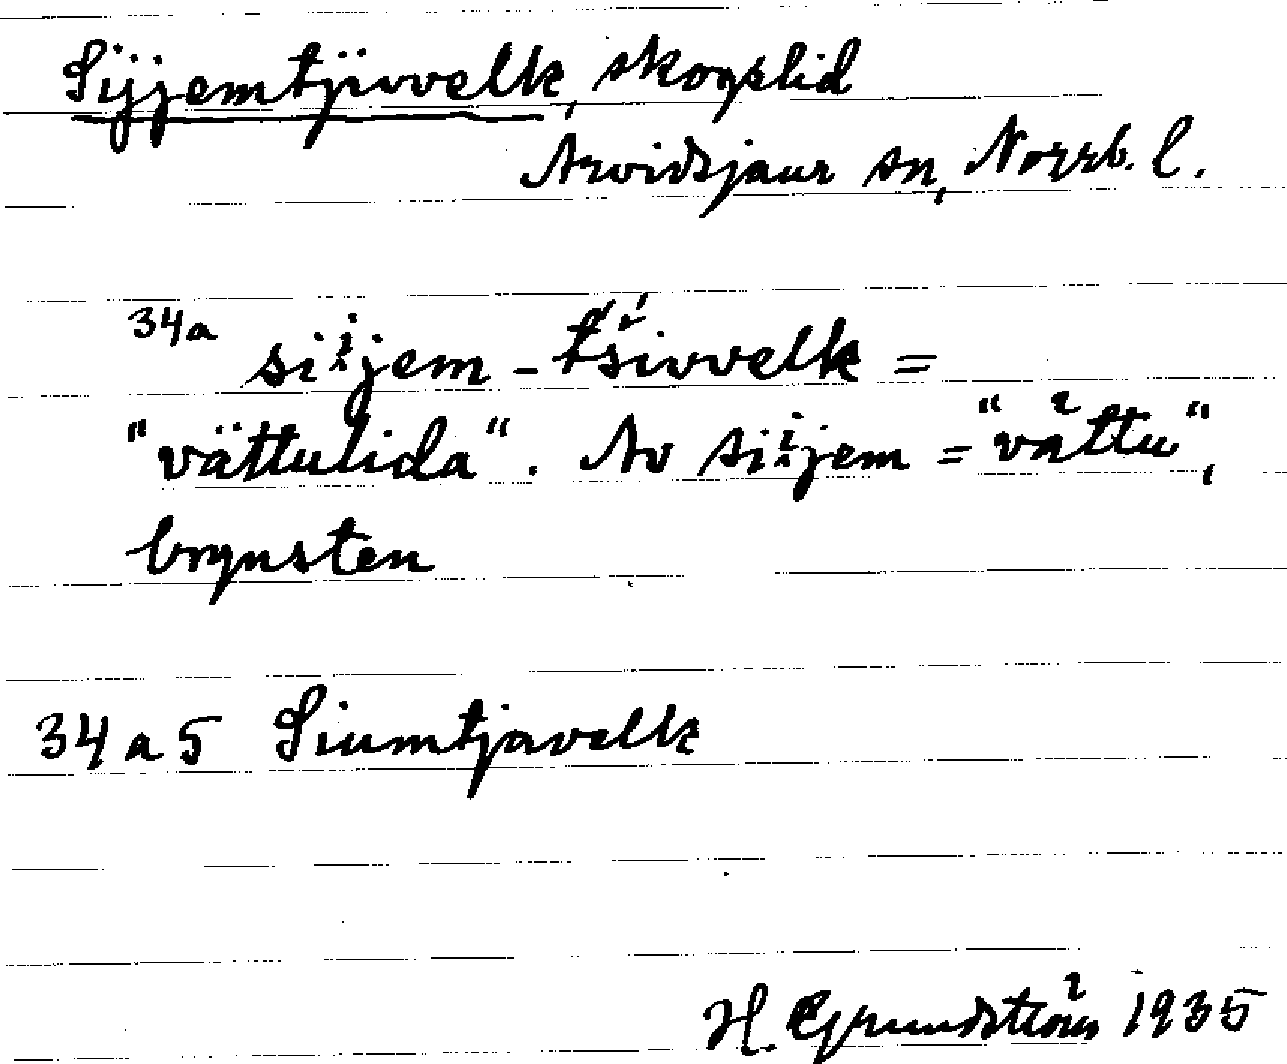 Sijjemtjivvelk, skogslid
Arvidsjaur sn, Norrb. l.
34a siijem - tšivvelk =
"vättulida". Av siijem = "vättu",
brynsten
34 a 5 Siumtjavelk
H. Grundström 1935